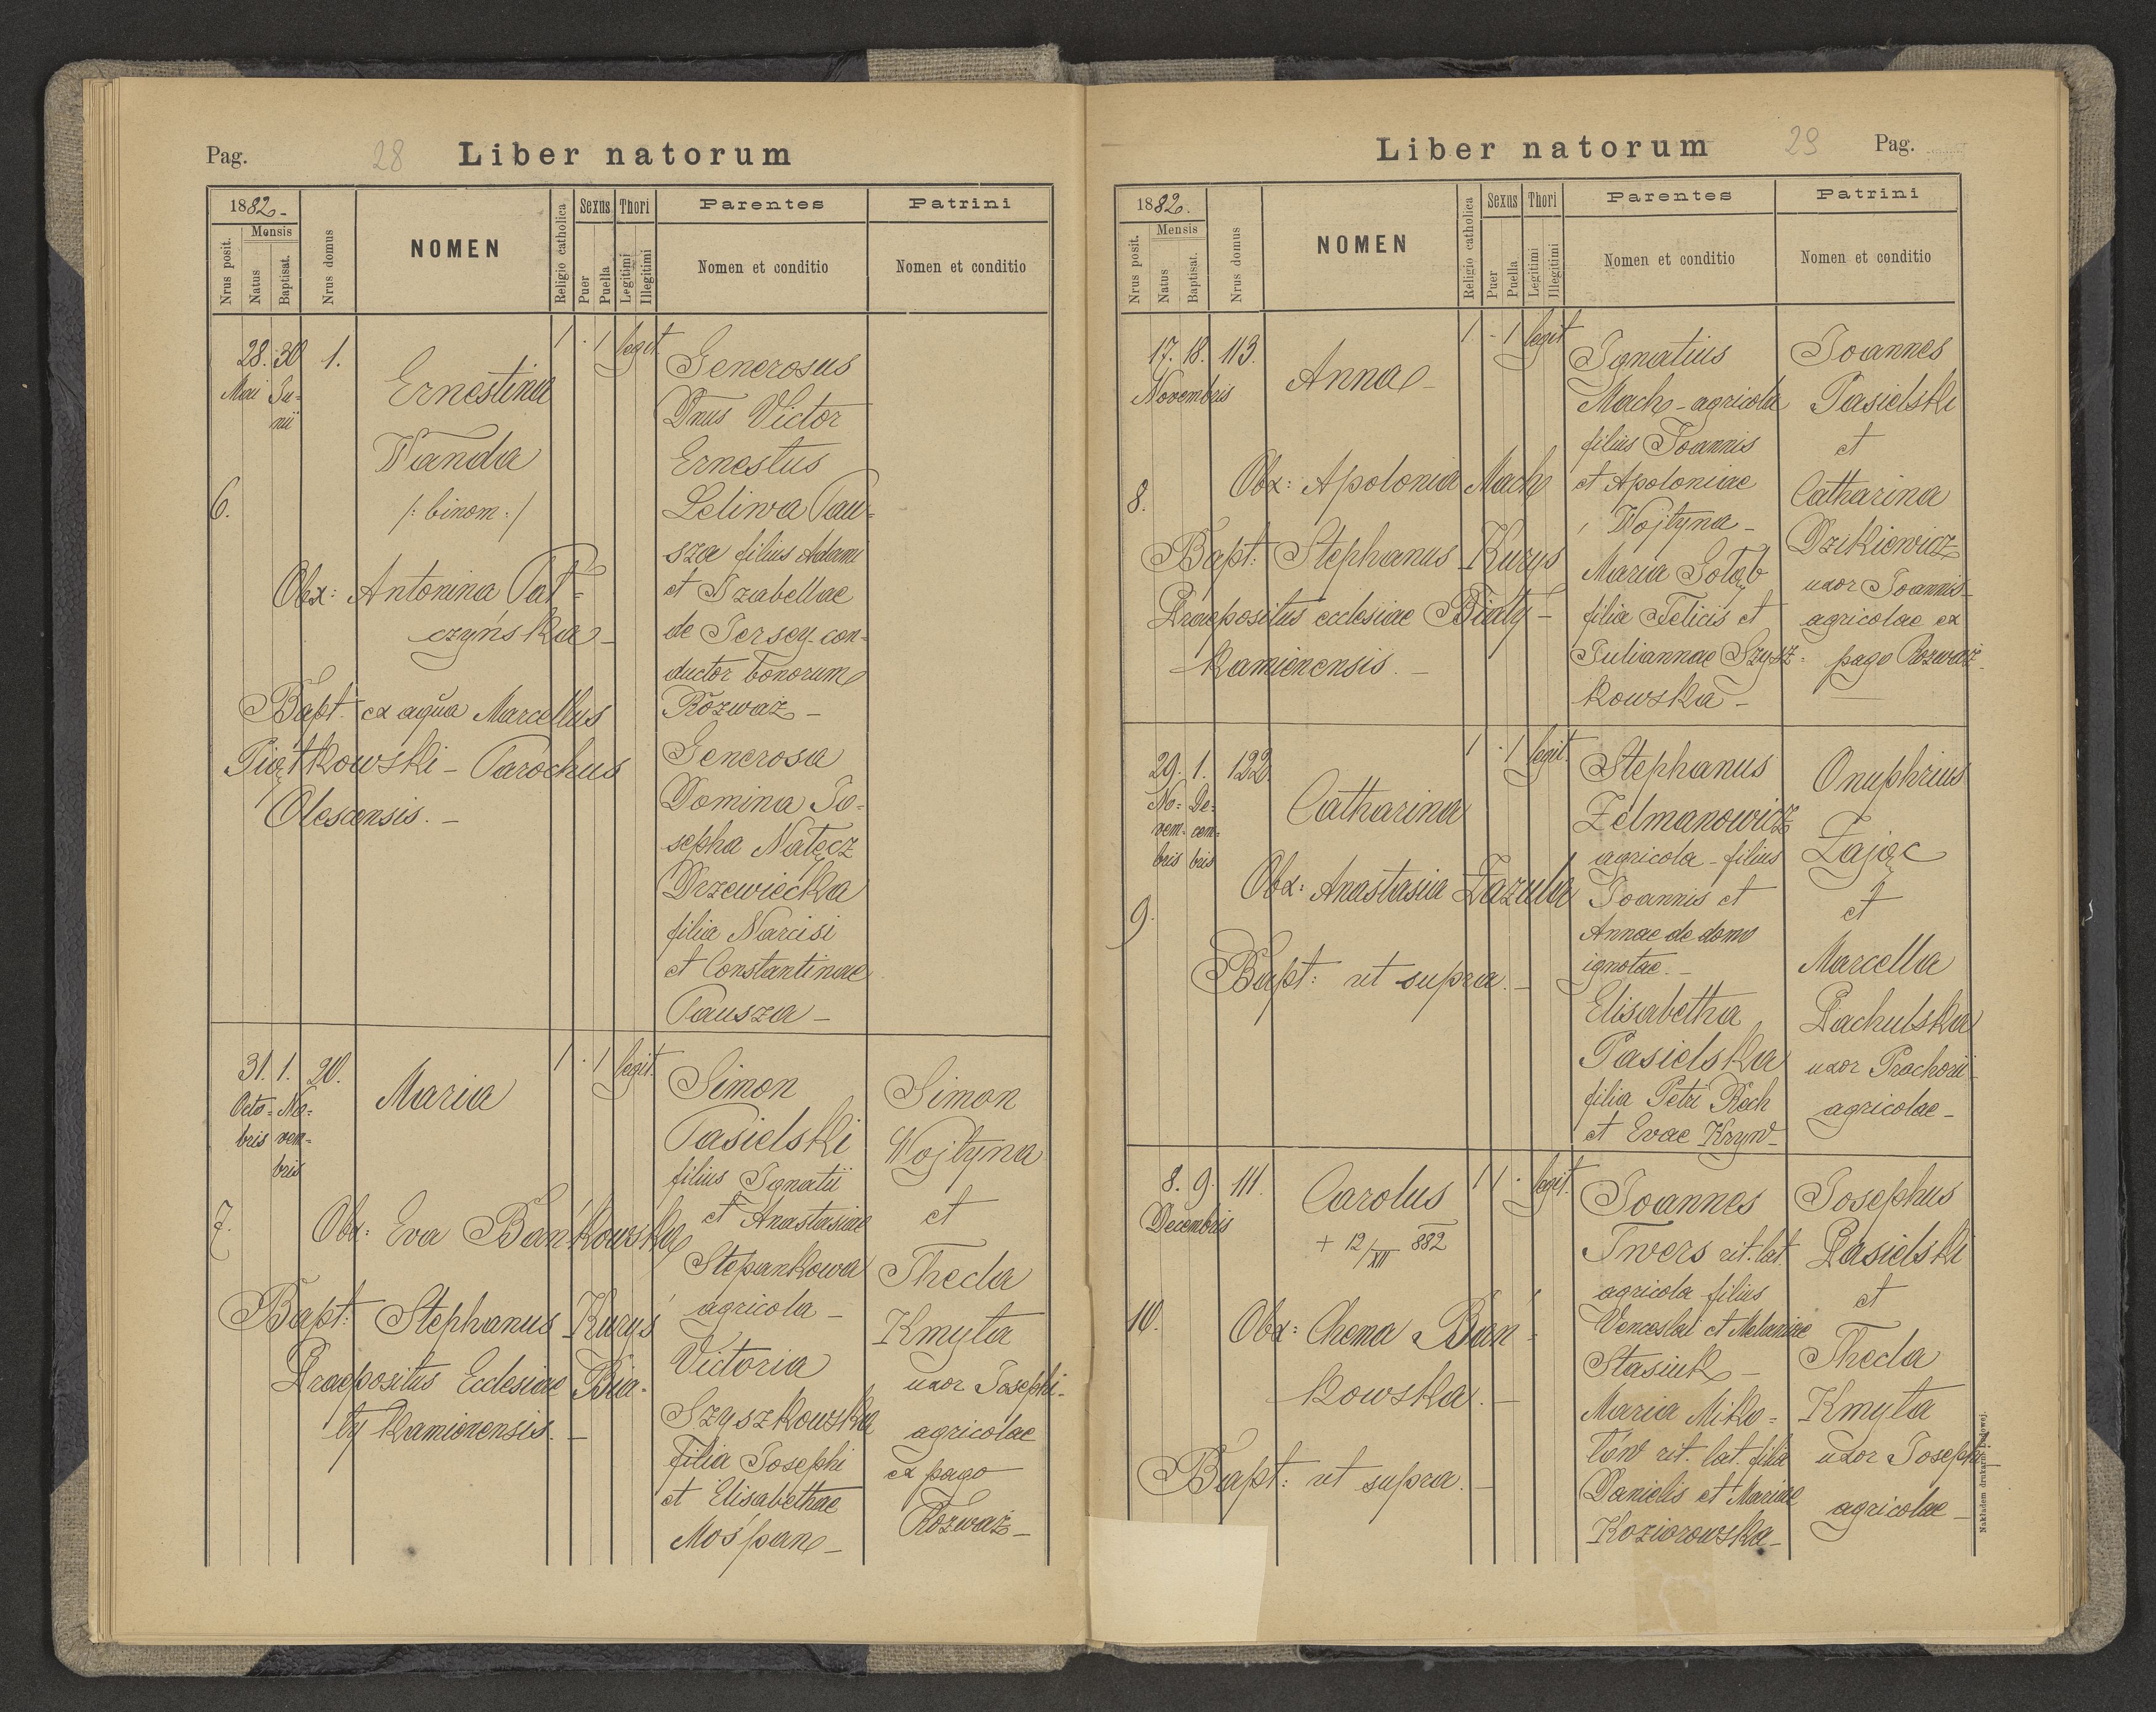 Pag. 28 Liber natorum
1882.
Mensis
Nrus posit.
Natus
Baptisat.
Nrus domus
NOMEN
Religio catholica
Sexus
Puer
Puella
Thori
Legitimi
Illegitimi
Parentes
Nomen et conditio
Patrini
Nomen et conditio
6.
28. 30 1.
Mai Ju-
nii
Ernestina
Wanda
/: binom :/
Obx: Antonina Pat-
czyńska
Bapt. ex aqua Marcellus
Piątkowski - Parochus
Olescensis. -
1 · 1 legit.
Generosus
Dnus Victor
Ernestus
Leliwa Pau-
sza filius Adami
et Izabellae
de Jersey con-
ductor bonorum
Rozważ -
Generosa
Domina Jo-
sepha Nałęcz
Drzewiecka
filia Narcisi
et Constantinae
Pausza -
7.
31. 1. 20.
Octo- No-
bris vem-
bris
Maria
Obx: Eva Bańkowska
Bapt: Stephanus Kuryś
Praepositus Ecclesiae Bia-
ły Kamienensis. -
1 · 1 legit.
Simon
Pasielski
filius Ignatii
et Anastasiae
Stepankowa
agricola -
Victoria
Szyszkowska
filia Josephi
et Elisabethae
Mośpan -
Simon
Wojtyna
et
Thecla
Kmyta
uxor Josephi -
agricolae
ex pago
Rozważ -
Liber natorum 29 Pag.
1882.
Mensis
Nrus posit.
Natus
Baptisat.
Nrus domus
NOMEN
Religio catholica
Sexus
Puer
Puella
Thori
Legitimi
Illegitimi
Parentes
Nomen et conditio
Patrini
Nomen et conditio
8.
17. 18. 113.
Novembris
Anna -
Obx: Apolonia Mach
Bapt: Stephanus Kurys
Praepositus ecclesiae Biały -
Kamienensis. -
1 · 1 legit
Ignatius
Mach - agricola
filius Joannis
et Apoloniae
Wojtyna -
Maria Gołąb
filia Felicis et
Juliannae Szysz-
kowska -
Joannes
Pasielski
et
Catharina
Dzikiewicz
uxor Joannis -
agricolae ex
pago Rozważ -
9.
29. 1. 122
No- De-
vem- cem-
bris bris
Catharina
Obx: Anastasia Zazula
Bapt: ut supra. -
1 · 1 legit.
Stephanus
Zelmanowicz
agricola - filius
Joannis et
Annae de domo
ignotae. -
Elisabetha
Pasielska
filia Petri Rech
et Evae Kryw -
Onuphrius
Zając
et
Marcella
Pachulska
uxor Prachorii -
agricolae -
10.
8. 9. 111.
Decembris
Carolus
+ 12/XII 882
Obx: Chema Bań-
kowska. -
Bapt: ut supra. -
1 1 · legit.
Joannes
Twers rit. lat.
agricola filius
Venceslai et Melaniae
Stasiuk -
Maria Miko-
łów rit. lat. filia
Danielis et Mariae
Koziorowska -
Josephus
Pasielski
et
Thecla
Kmyta
uxor Josephi -
agricolae -
Nakładem drukarni